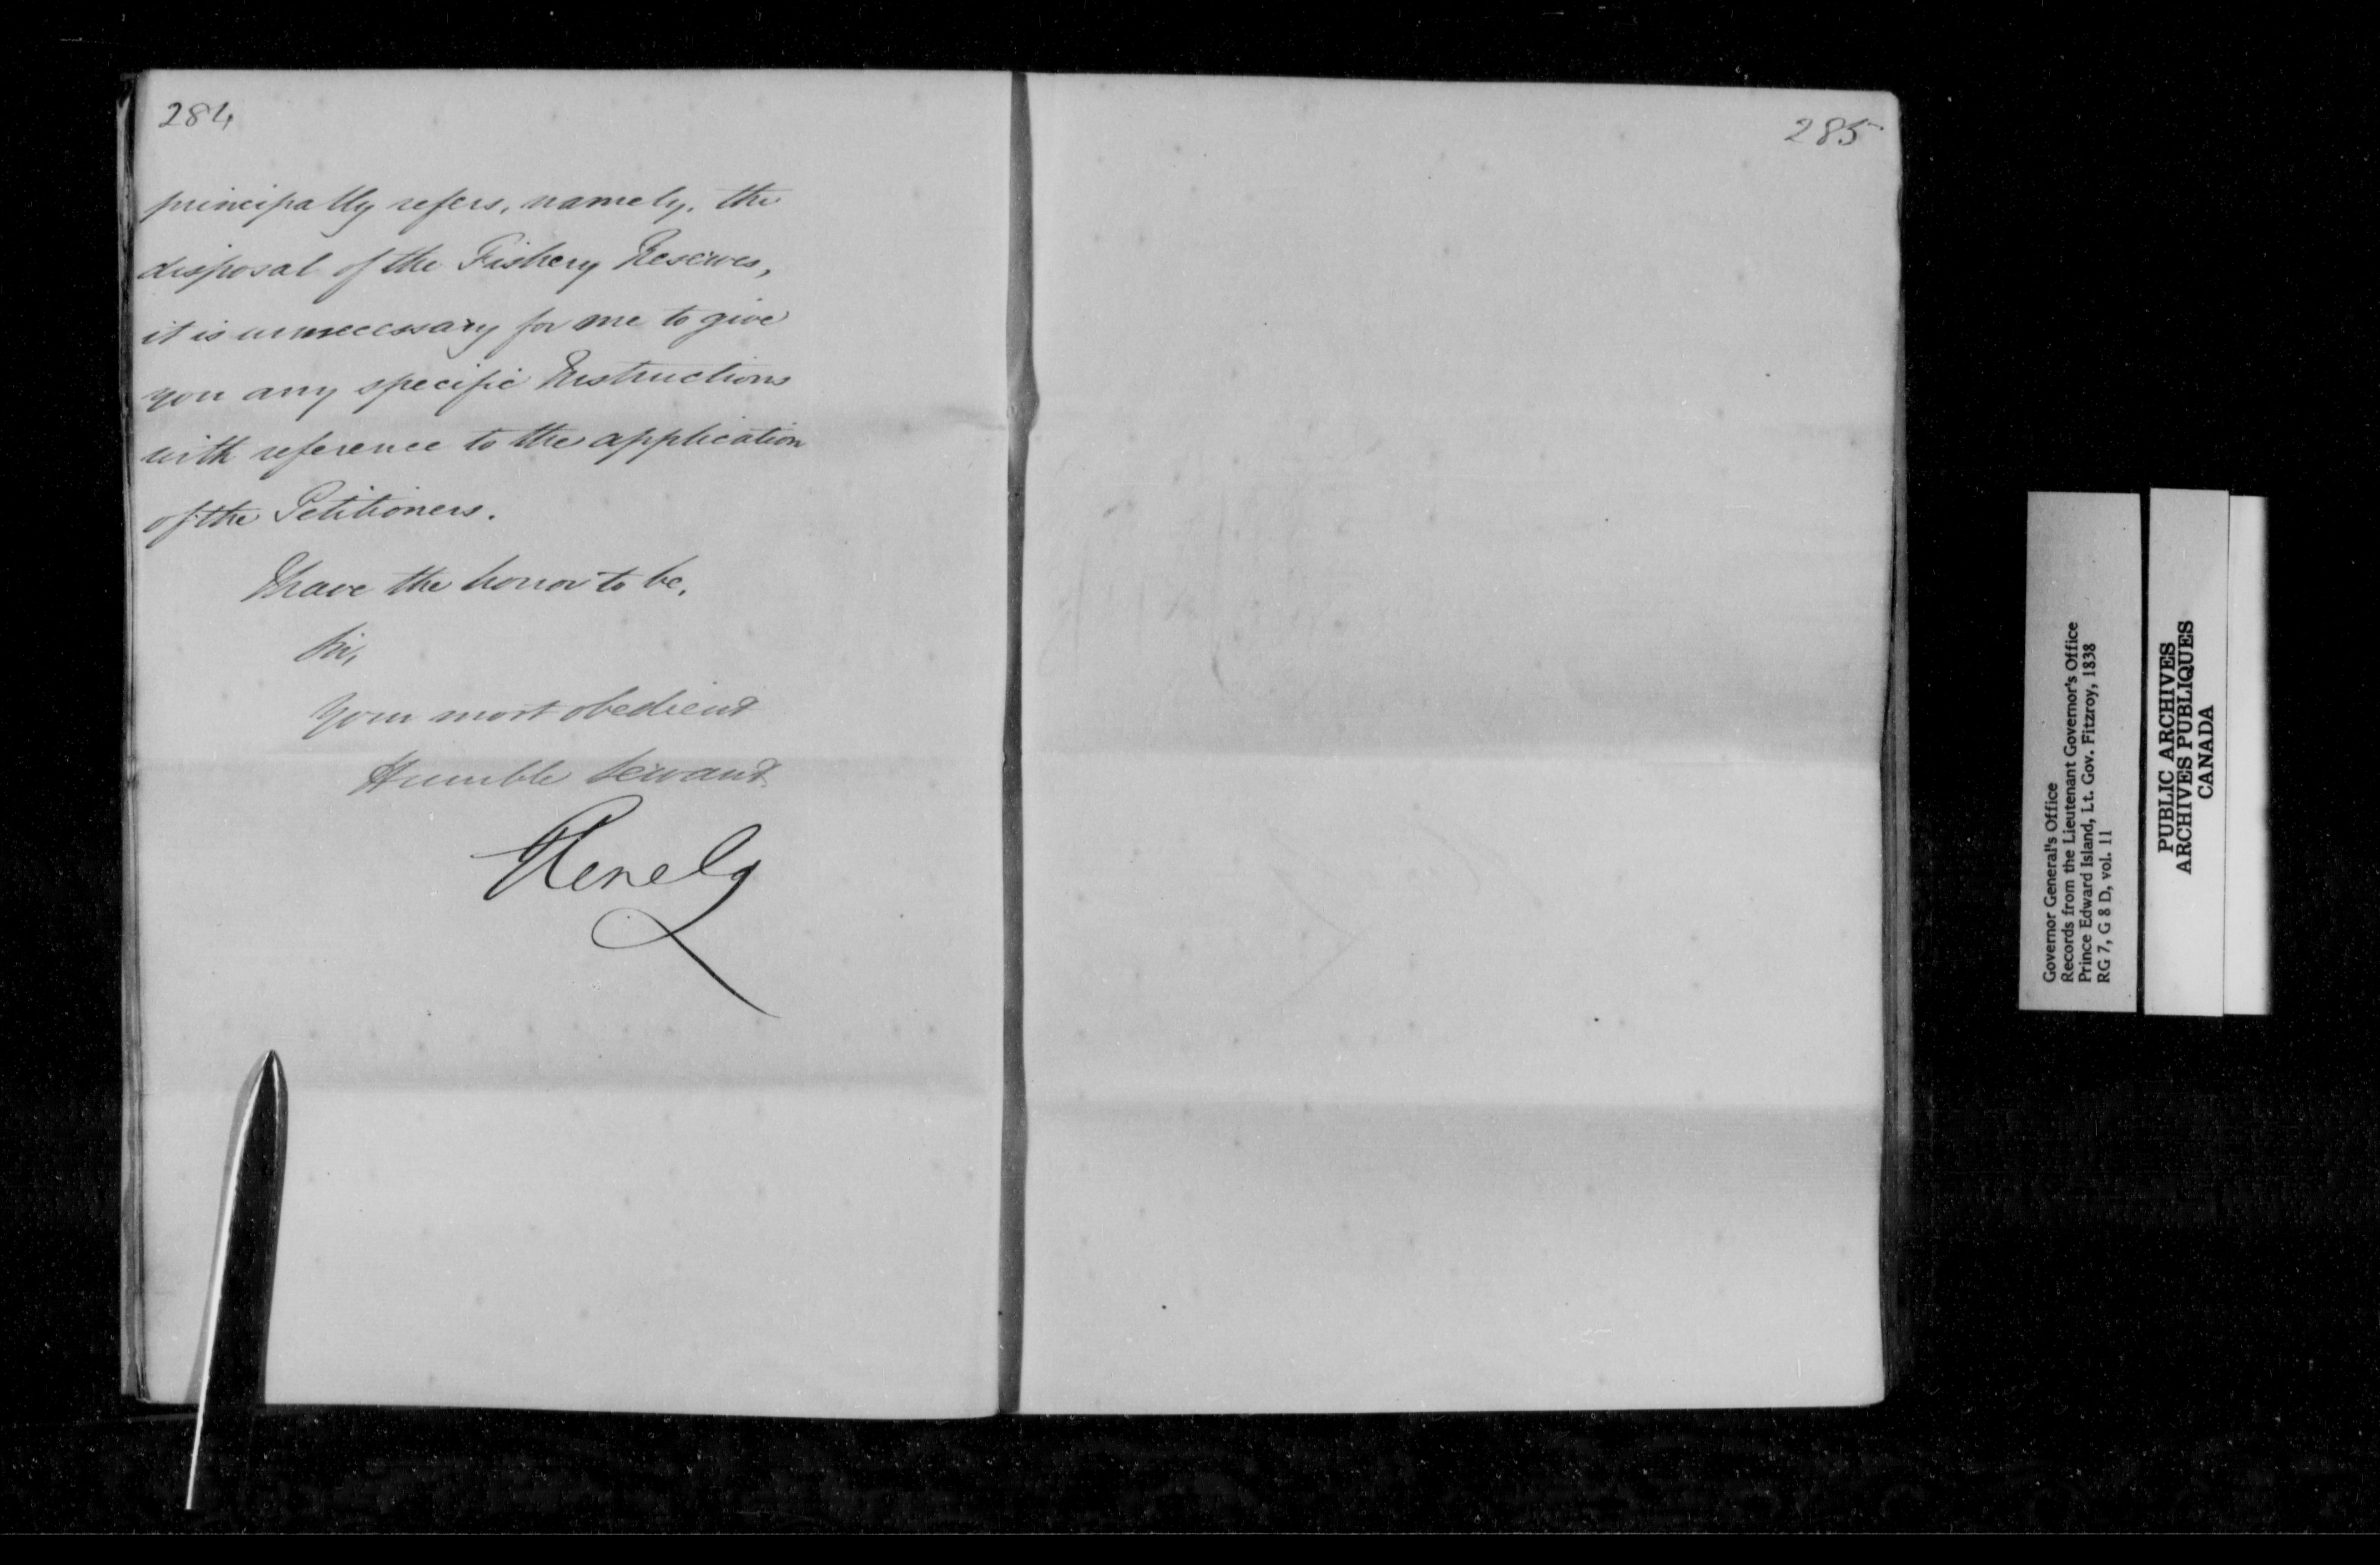 284
principally refers, namely, the
disposal of the Fishery Reserves,
it is unnecessary for me to give
you any specific Instructions
with reference to the application
of the Petitioners.
I have the honor to be,
Sir,
Your most obedient
Humble Servant
Glenelg
285
Governor General's Office
Records from the Lieutenant Governor's Office
Prince Edward Island, Lt. Gov. Fitzroy, 1838
RG 7, G 8 D, vol. 11
PUBLIC ARCHIVES
ARCHIVES PUBLIQUES
CANADA